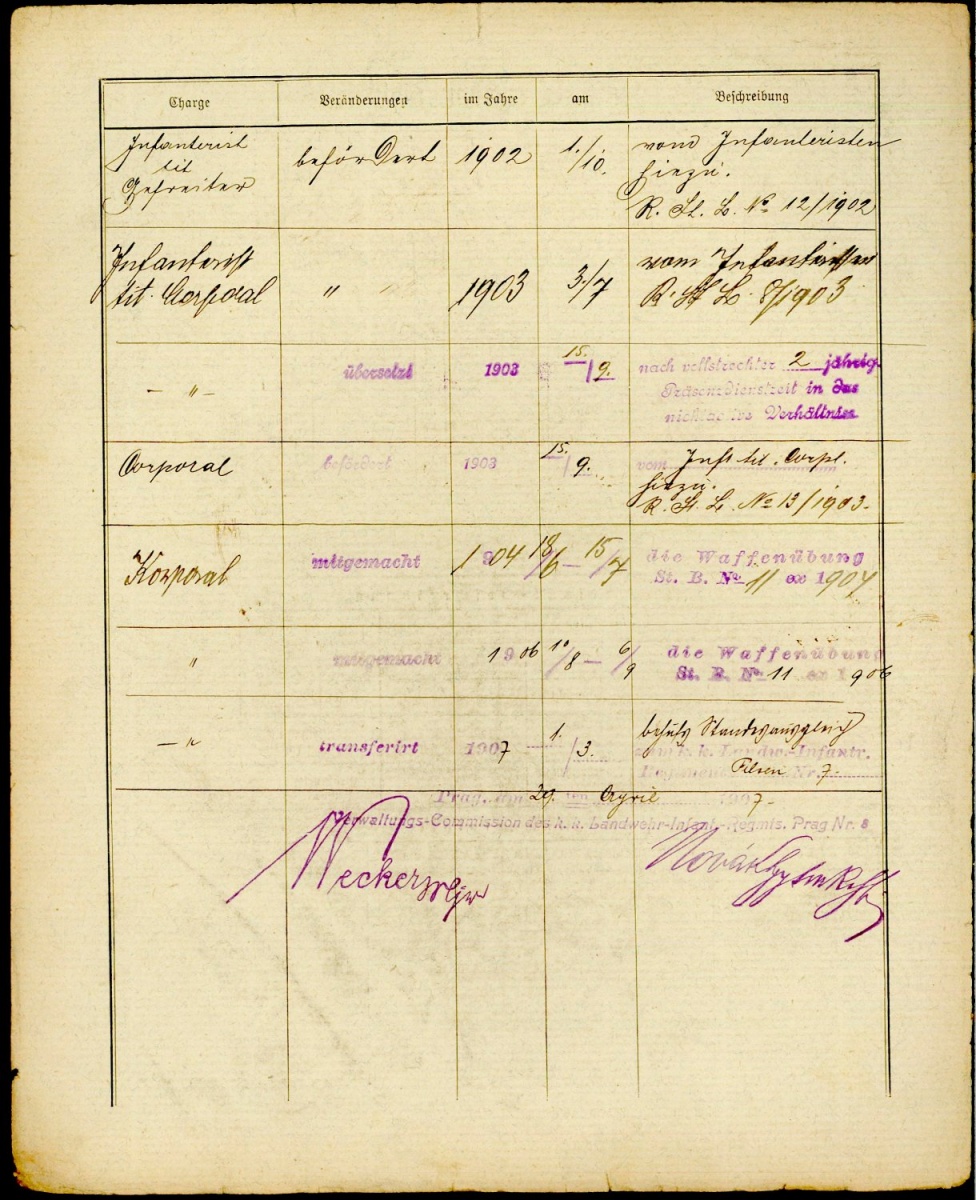 Charge Veränderungen im Jahre am Beschreibung
Infanterist
tit
Gefreiter
befördert 1902 1./10.
vom Infanteristen
hiezu.
R. St. B. No 12/1902
Infanterist
tit. Corporal
" " 1903 3./7
vom Infanteristen
R. St. B. 8/1903
— " —
übersetzt 1903 15./9.
nach vollstreckter 2 jährig.
Präsenzdienstzeit in das
nichtactive Verhältnis
Corporal befördert 1903 15./9.
vom Inft tit. Corpl.
hiezu.
R. St. B. No 13/1903.
Korporal mitgemacht 1904 18/6 — 15/7
die Waffenübung
St. B. No 11 ex 1904
" mitgemacht 1906 10/8 — 6/9
die Waffenübung
St. B. No 11 ex 1906
— " transferirt 1907 1./3.
behufs Standesausgleich
zum k. k. Landw.-Infantr.
Regiment Pilsen Nr. 7.
Prag, am 29. ten April 1907.
Verwaltungs-Commission des k. k. Landwehr-Infant.-Regmts. Prag Nr. 8
Wecker Mjr
Novák